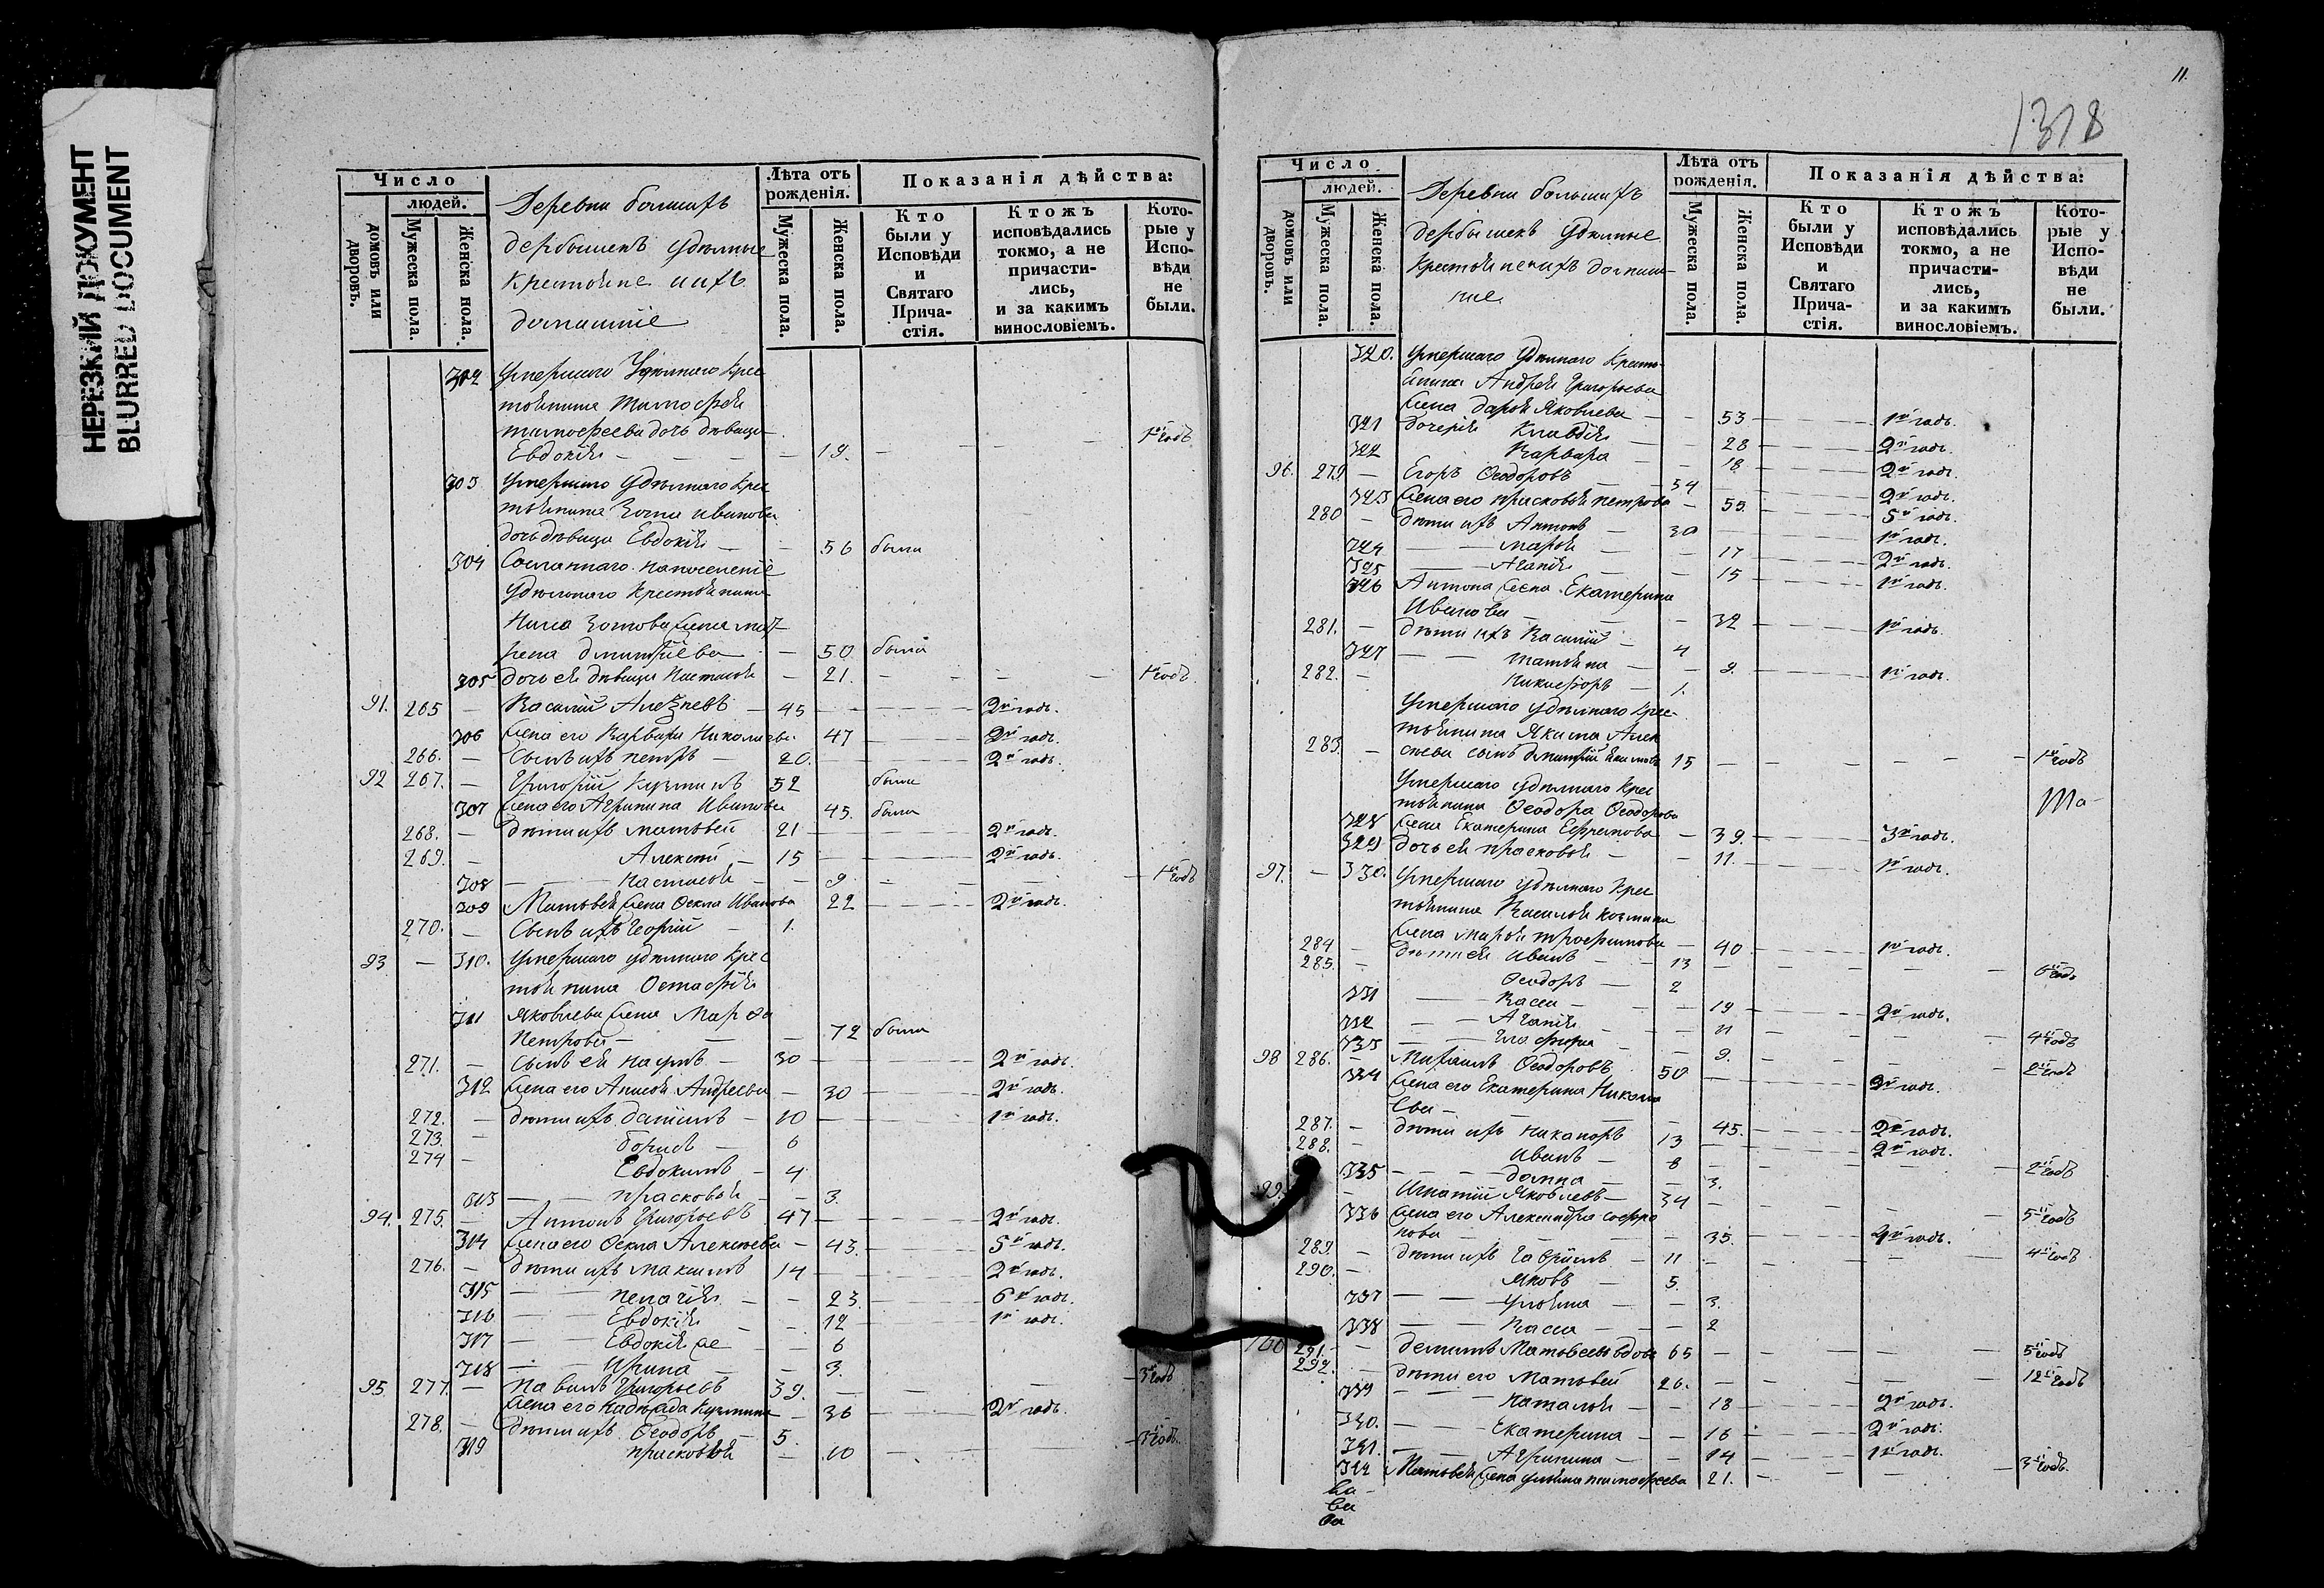 НЕРЕЗКИЙ ДОКУМЕНТ
BLURRED DOCUMENT
Число
людей.
домовъ или дворовъ.
Мужеска пола.
Женска пола.
Деревни большихъ
дербышекъ удѣльные
крестьяне ихъ
домашніе
Лѣта отъ рожденія.
Мужеска пола.
Женска пола.
Показанія дѣйства:
Кто были у Исповѣди и Святаго Прича-стія.
Ктожъ исповѣдались токмо, а не причасти-лись, и за какимъ винословіемъ.
Кото-рые у Испо-вѣди не были.
302 Умершаго Удѣльнаго Крес
тьянина Тимофея
тимофеева дочь дѣвица
Евдокія 19. 1й годъ
303 Умершаго Удѣльнаго Крес
тьянина Зота иванова
дочь дѣвица Евдокія 56 была
304 Сосланнаго на поселеніе
Удѣльнаго Крестьянина
Зотова жена мат
рена дмитріева 50 была
305 дочь ея дѣвица Настасья 21. 1й годъ
91. 265 Василій Алексѣевъ 45 2й годъ.
306 жена его Варвара Николаева 47 2й годъ.
266. Сынъ ихъ петръ 20. 2й годъ.
92 267. Григорій Кузминъ 52 былъ
307 жена его Агрипина Иванова 45. была
268. дѣти ихъ матвѣй 21 2й годъ.
269. Алексѣй 15 2й годъ.
308 настасья 9 1й годъ
309 Матвѣя жена Ѳекла Иванова 22 2й годъ.
270. Сынъ ихъ Георгій 1.
93 310. Умершаго удѣльнаго Крес
тьянина Остафья
311 Яковлева жена Марѳа
Петрова 72 была
271. сынъ ея наумъ 30 2й годъ.
312 жена его Анисья Андреева 30 2й годъ.
272. дѣти ихъ даніилъ 10 1й годъ.
273. борисъ 6
274 Евдокимъ 4
313 прасковья 3.
94. 275. Антонъ Григорьевъ 47 2й годъ.
314 жена его Ѳекла Алексѣева 43. 5й годъ.
276. дѣти ихъ максимъ 14 2й годъ.
315 пелагія 23. 6й годъ.
316 Евдокія 12 1й годъ.
317 Евдокія же 6
318 Ирина 3. 3й годъ
95 277. Павелъ Григорьевъ 39.
жена его надежда Кузмина 36 2й годъ.
278. дѣти ихъ Ѳеодоръ 5. 3й годъ.
319 прасковья 10
11.
1318
Число
людей.
домовъ или дворовъ.
Мужеска пола.
Женска пола.
Деревни большихъ
дербышекъ удѣльные
крестьяне ихъ домаш-
ніе
Лѣта отъ рожденія.
Мужеска пола.
Женска пола.
Показанія дѣйства:
Кто были у Исповѣди и Святаго Прича-стія.
Ктожъ исповѣдались токмо, а не причасти-лись, и за какимъ винословіемъ.
Кото-рые у Испо-вѣди не были.
320. Умершаго удѣльнаго Кресть-
янина Андрея Григорьева
жена дарья Яковлева 53 1й годъ.
321 дочери Клавдія 28 2й годъ.
322 Варвара 18 2й годъ.
96. 279. Егоръ Ѳеодоровъ 54 2й годъ.
323 жена его прасковья петрова 55. 5й годъ.
280 дѣти ихъ Антонъ 30 1й годъ.
324 марья 17 2й годъ.
325 Агапія 15 1й годъ.
326 Антона жена Екатерина
Иванова 32 1й годъ.
281. дѣти ихъ Василій 4
327 татьяна 9. 1й годъ.
282. никифоръ 1.
Умершаго удѣльнаго Крес-
тьянина Якима Алек
283. сѣева сынъ дмитрій Якимовъ 15 1й годъ
Умершаго удѣльнаго Крес
тьянина Ѳеодора Ѳеодорова
328 жена Екатерина Ефремова 39. 3й годъ.
329 дочь ея прасковья 11. 1й годъ.
97. 330. Умершаго удѣльнаго Крес
тьянина Василья козмина
жена марья трофимова 40 1й годъ.
284 дѣти ея Иванъ 13 6й годъ
285. Ѳеодоръ 2
331 Васса 19 2й годъ.
332 Агапія 11 4й годъ
333 Глафира 9. 2й годъ
98 286. Михаилъ Ѳеодоровъ 50 2й годъ.
334 жена его Екатерина Никола
ева 45. 2й годъ.
287. дѣти ихъ никаноръ 13 2й годъ.
288. Иванъ 8 2й годъ
335 домна 3.
99. Игнатій Яковлевъ 34 5й годъ
336 жена его Александра софро
нова 35. 4й годъ.
289. дѣти ихъ Гавріилъ 11 4й годъ
290. Яковъ 5.
337 Ульяна 3.
338 Васса 2
100 291. дементій Матвѣевъ вдовъ 65 5й годъ
292. дѣти его Матвѣй 26. 12й годъ
339 наталья 18 2й годъ.
340. Екатерина 16 2й годъ.
341. Агрипина 14 1й годъ.
342 Матвѣя жена ульяна тимофеева 21. 3й годъ.